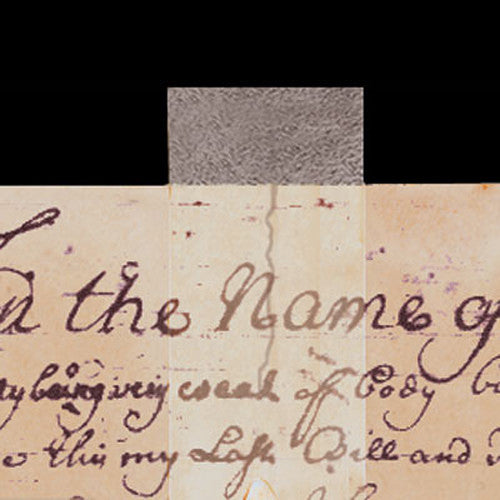 the Name of
being very weak of Body
this my Last Will and